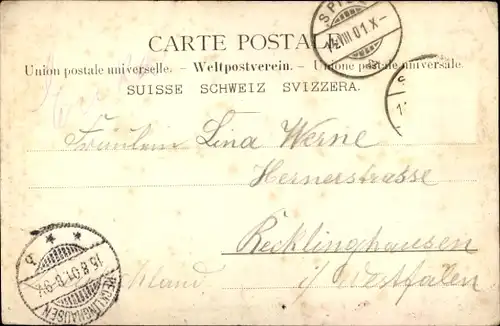 CARTE POSTALE
Union postale universelle. – Weltpostverein. – Unione postale universale.
SUISSE SCHWEIZ SVIZZERA.
Fräulein Lina Werne
Hernerstrasse
Recklinghausen
i/Westfalen
RECKLINGHAUSEN
15.8.01.8-9V